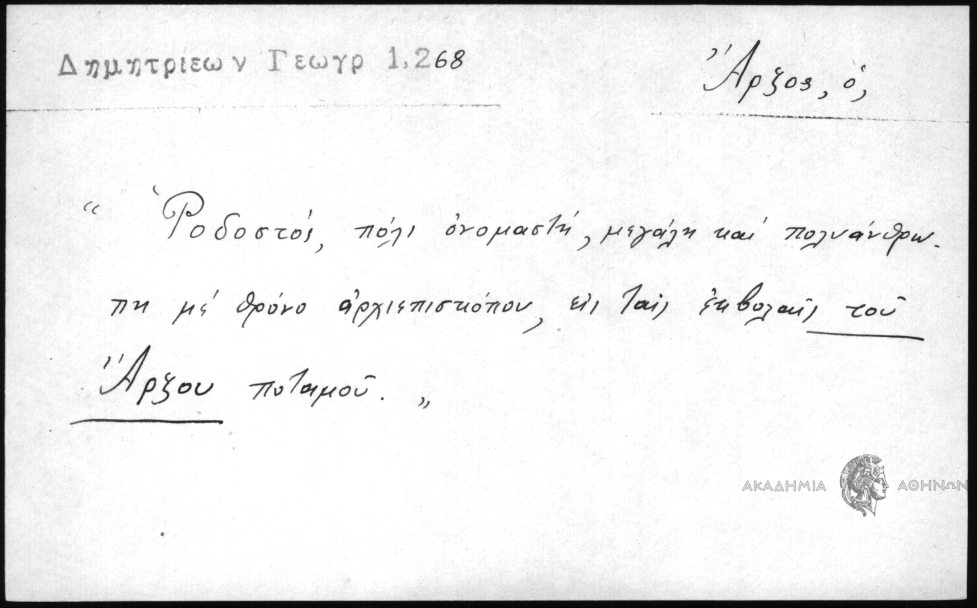 Δημητριεων Γεωγρ 1,268
Ἄρξος, ὁ,
“ Ῥοδοστός, πόλι ὀνομαστή, μεγάλη καί πολυάνθρω-
πη μέ θρόνο ἀρχιεπισκόπου, εἰς ταῖς ἐκβολαῖς τοῦ
Ἄρξου ποταμοῦ. „
ΑΚΑΔΗΜΙΑ ΑΘΗΝΩΝ